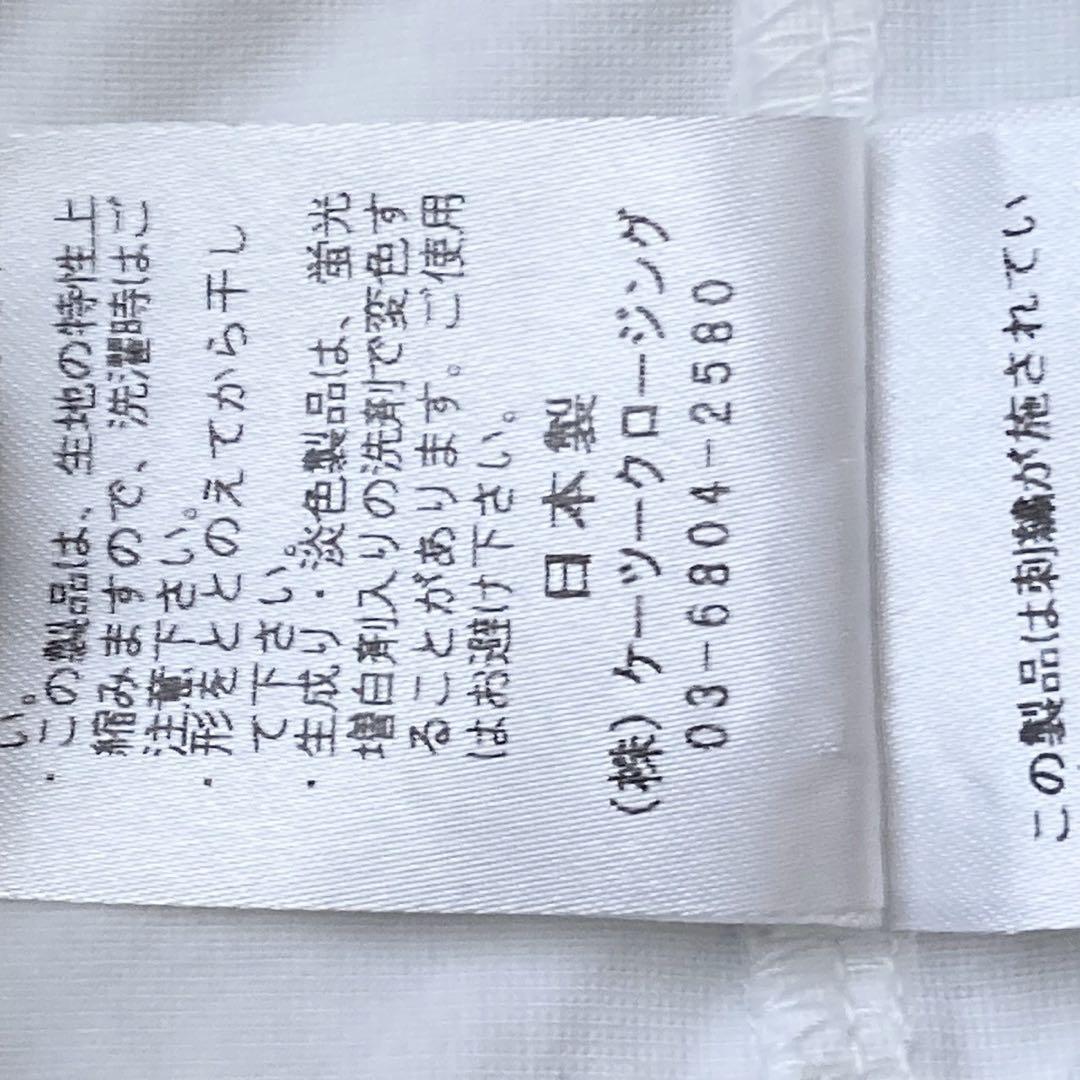 い。
・この製品は、生地の特性上
縮みますので、洗濯時はご
注意下さい。
・形をととのえてから干し
て下さい。
・生成り・淡色製品は、蛍光
増白剤入りの洗剤で変色す
ることがあります。ご使用
はお避け下さい。
日本製
(株)ケーツークロージング
03-6804-2580
この製品は刺繍が施されてい